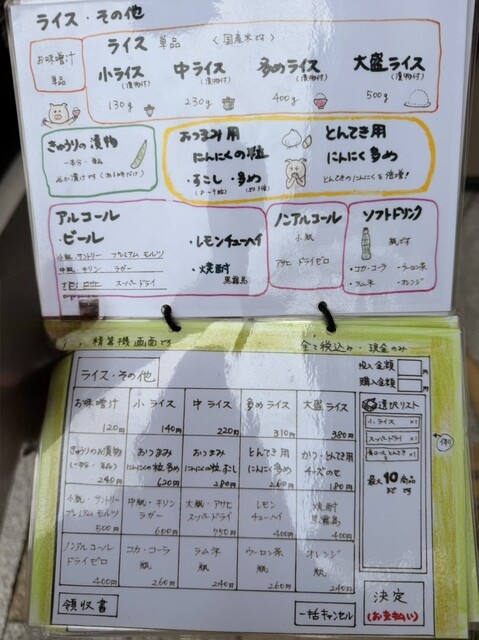 ライス・その他
お味噌汁
単品
ライス 単品 〈国産米です〉
小ライス (漬物付)
130g
中ライス (漬物付)
230g
多めライス (漬物付)
400g
大盛ライス (漬物付)
500g
きゅうりの漬物
一本分・単品
おつまみ用
にんにくの粒
・すこし・多め
とんてき用
にんにく多め
とんてきのにんにくを倍増!
アルコール
・ビール
小瓶 サントリー プレミアム モルツ
中瓶 キリン ラガー
大瓶 アサヒ スーパードライ
・レモンチューハイ
・焼酎
黒霧島
ノンアルコール
小瓶
アサヒ ドライゼロ
ソフトドリンク
瓶です
・コカ・コーラ ・ウーロン茶
・ラムネ ・オレンジ
精算機画面です 全て税込み・現金のみ
ライス・その他
投入金額 円
購入金額 円
お味噌汁
120円
小ライス
140円
中ライス
220円
多めライス
310円
大盛ライス
380円
きゅうりのお漬物
(一本分・単品)
240円
おつまみ
にんにくの粒 多め
620円
おつまみ
にんにくの粒 少し
380円
とんてき用
にんにく多め
260円
かつ・とんてき用
チーズのせ
180円
小瓶・サントリー
プレミアムモルツ
500円
中瓶・キリン
ラガー
600円
大瓶・アサヒ
スーパードライ
750円
レモン
チューハイ
400円
焼酎
黒霧島
400円
ノンアルコール
ドライゼロ
400円
コカ・コーラ
瓶
260円
ラムネ
瓶
240円
ウーロン茶
瓶
260円
オレンジ
瓶
240円
選択リスト
小ライス ×1
スーパードライ ×1
←例
最大10商品
までです
領収書
一括キャンセル
決定
(お支払い)